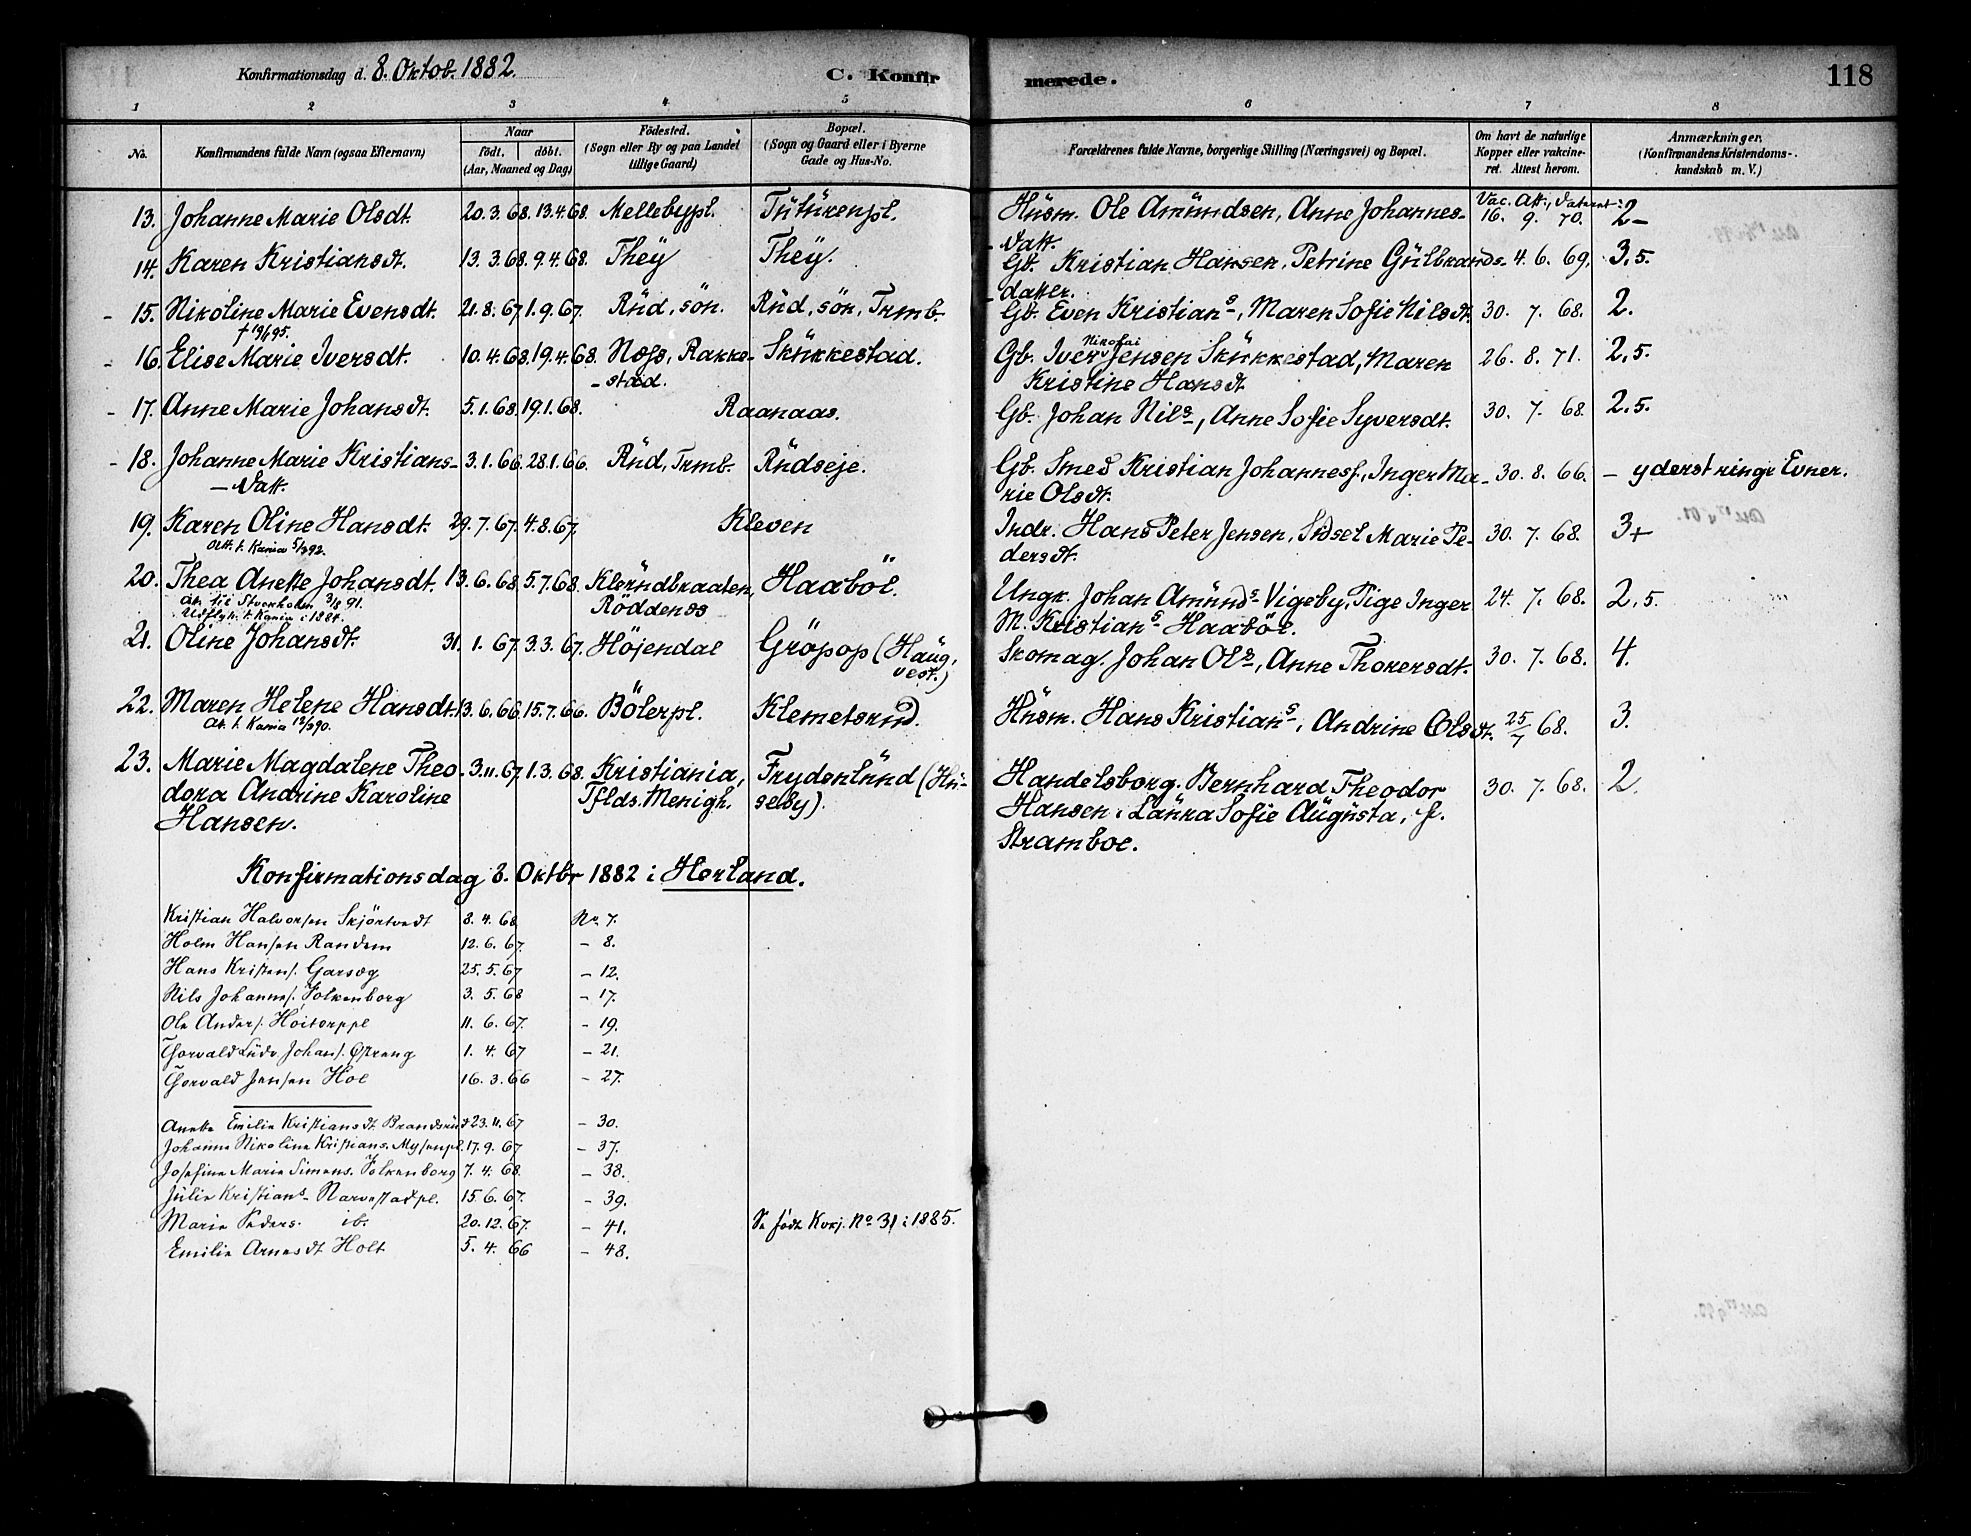 Konfirmationsdag d. 8. Oktob. 1882.
C. Konfir
merede.
118
1 2 3 4 5 6 7 8
No.
Konfirmandens fulde Navn (ogsaa Efternavn)
Naar
födt. döbt.
(Aar, Maaned og Dag)
Födested.
(Sogn eller By og paa Landet
tillige Gaard)
Bopæl.
(Sogn og Gaard eller i Byerne
Gade og Hus-No.
Forældrenes fulde Navne, borgerlige Stilling (Næringsvei) og Bopæl.
Om havt de naturlige
Kopper eller vakcine-
ret. Attest herom.
Anmærkninger,
(Konfirmandens Kristendoms-
kundskab m. V.)
13. Johanne Marie Olsdt. 20. 3. 68. 13. 4. 68. Mellebypl. Tüturenpl. Hüsm. Ole Amündsen, Anne Johannes- Vac. Att., 16. 9. 70. 2-
- Datt.
14. Karen Kristiansdt. 13. 3. 68. 9. 4. 68. Theÿ Theÿ. Gb. Kristian Hansen, Petrine Gülbrands- 4. 6. 69. 3,5.
- datter.
- 15. Nikoline Marie Evensdt. 21. 8. 67. 1. 9. 67. Rüd, sön. Rüd, sön, Trmb. Gb. Even Kristians, Maren Sofie Nilsdt. 30. 7. 68. 2.
- 16. Elise Marie Iversdt. 10. 4. 68. 19. 4. 68. Nofs, Rakke- Skükkestad. Gb. Iver Nikolai Jensen Skükkestad, Maren 26. 8. 71. 2,5.
- stad. Kristine Hansdt
- 17. Anne Marie Johansdt. 5. 1. 68. 19. 1. 68. Raanaas. Gb. Johan Nils, Anne Sofie Syversdt. 30. 7. 68. 2,5.
- 18. Johanne Marie Kristians- 3. 1. 66. 28. 1. 66. Rüd, Trmb. Rüdseje. Gb. Smed Kristian Johannesf., Inger Ma- 30. 8. 66. - yderst ringe Evner.
- Datt. rie Olsdt.
19. Karen Oline Hansdt. 29. 7. 67. 4. 8. 67. Kleven Indr. Hans Peter Jensen, Sidsel Marie Pe- 30. 7. 68. 3+
Att. t. Kania 5/3 92. dersdt.
20. Thea Anette Johansdt. 13. 6. 68. 5. 7. 68. Klerüdbraaten, Haaböl. Ungk. Johan Amünds- Vigeby, Pige Inger 24. 7. 68. 2,5.
Att. til Stockholm 3/8 91. Röddenss M. Kristians- Haaböl.
Udflytt. t. Kania i 1884.
21. Oline Johansdt. 31. 1. 67. 3. 3. 67. Höjendal Gröpop (Haüg, Skomag. Johan Ols, Anne Thorersdt. 30. 7. 68. 4.
vest.)
22. Maren Helene Hansdt. 13. 6. 66. 15. 7. 66. Bölerpl. Klemetsrud. Hüsm. Hans Kristians, Andrine Olsdt. 25/7 68. 3.
Att. t. Kania
23. Marie Magdalene Theo- 3. 11. 67. 1. 3. 68. Kristiania, Frydenlünd (Hü- Handelsborg. Bernhard Theodor 30. 7. 68. 2.
dora Andrine Karoline Tflds. Menigh. seby). Hansen, Laüra Sofie Aügüsta, f.
Hansen. Stramboe.
Konfirmationsdag 8. Oktbr 1882 i Herland.
Kristian Halvorsen Skjörtvedt 8. 4. 68 No 7.
Holm Hansen Randem 12. 6. 67. - 8.
Hans Kristens. Garseg 25. 5. 67 - 12.
Nils Johannes. Folkenborg 3. 5. 68 - 17.
Ole Anders. Höitorppl 11. 6. 67. - 19.
Thorvald Lüdv. Johans. Östreng 1. 4. 67 - 21.
Thorvald Jensen Hol 16. 3. 66 - 27.
Anette Emilie Kristiansdt. Brandsrüd 23. 11. 67 - 30.
Johanne Nikoline Kristians. Mysenpl. 17. 9. 67 - 37.
Josefine Marie Simens. Folkenborg 7. 4. 68. - 38.
Jülie Kristians- Narvestadpl. 15 6. 67. - 39.
Marie Peders. ib. 20. 12. 67. - 41. Se födte Kvkj. No 31 i 1885.
Emilie Arnesdt Holt 5. 4. 66 - 48.